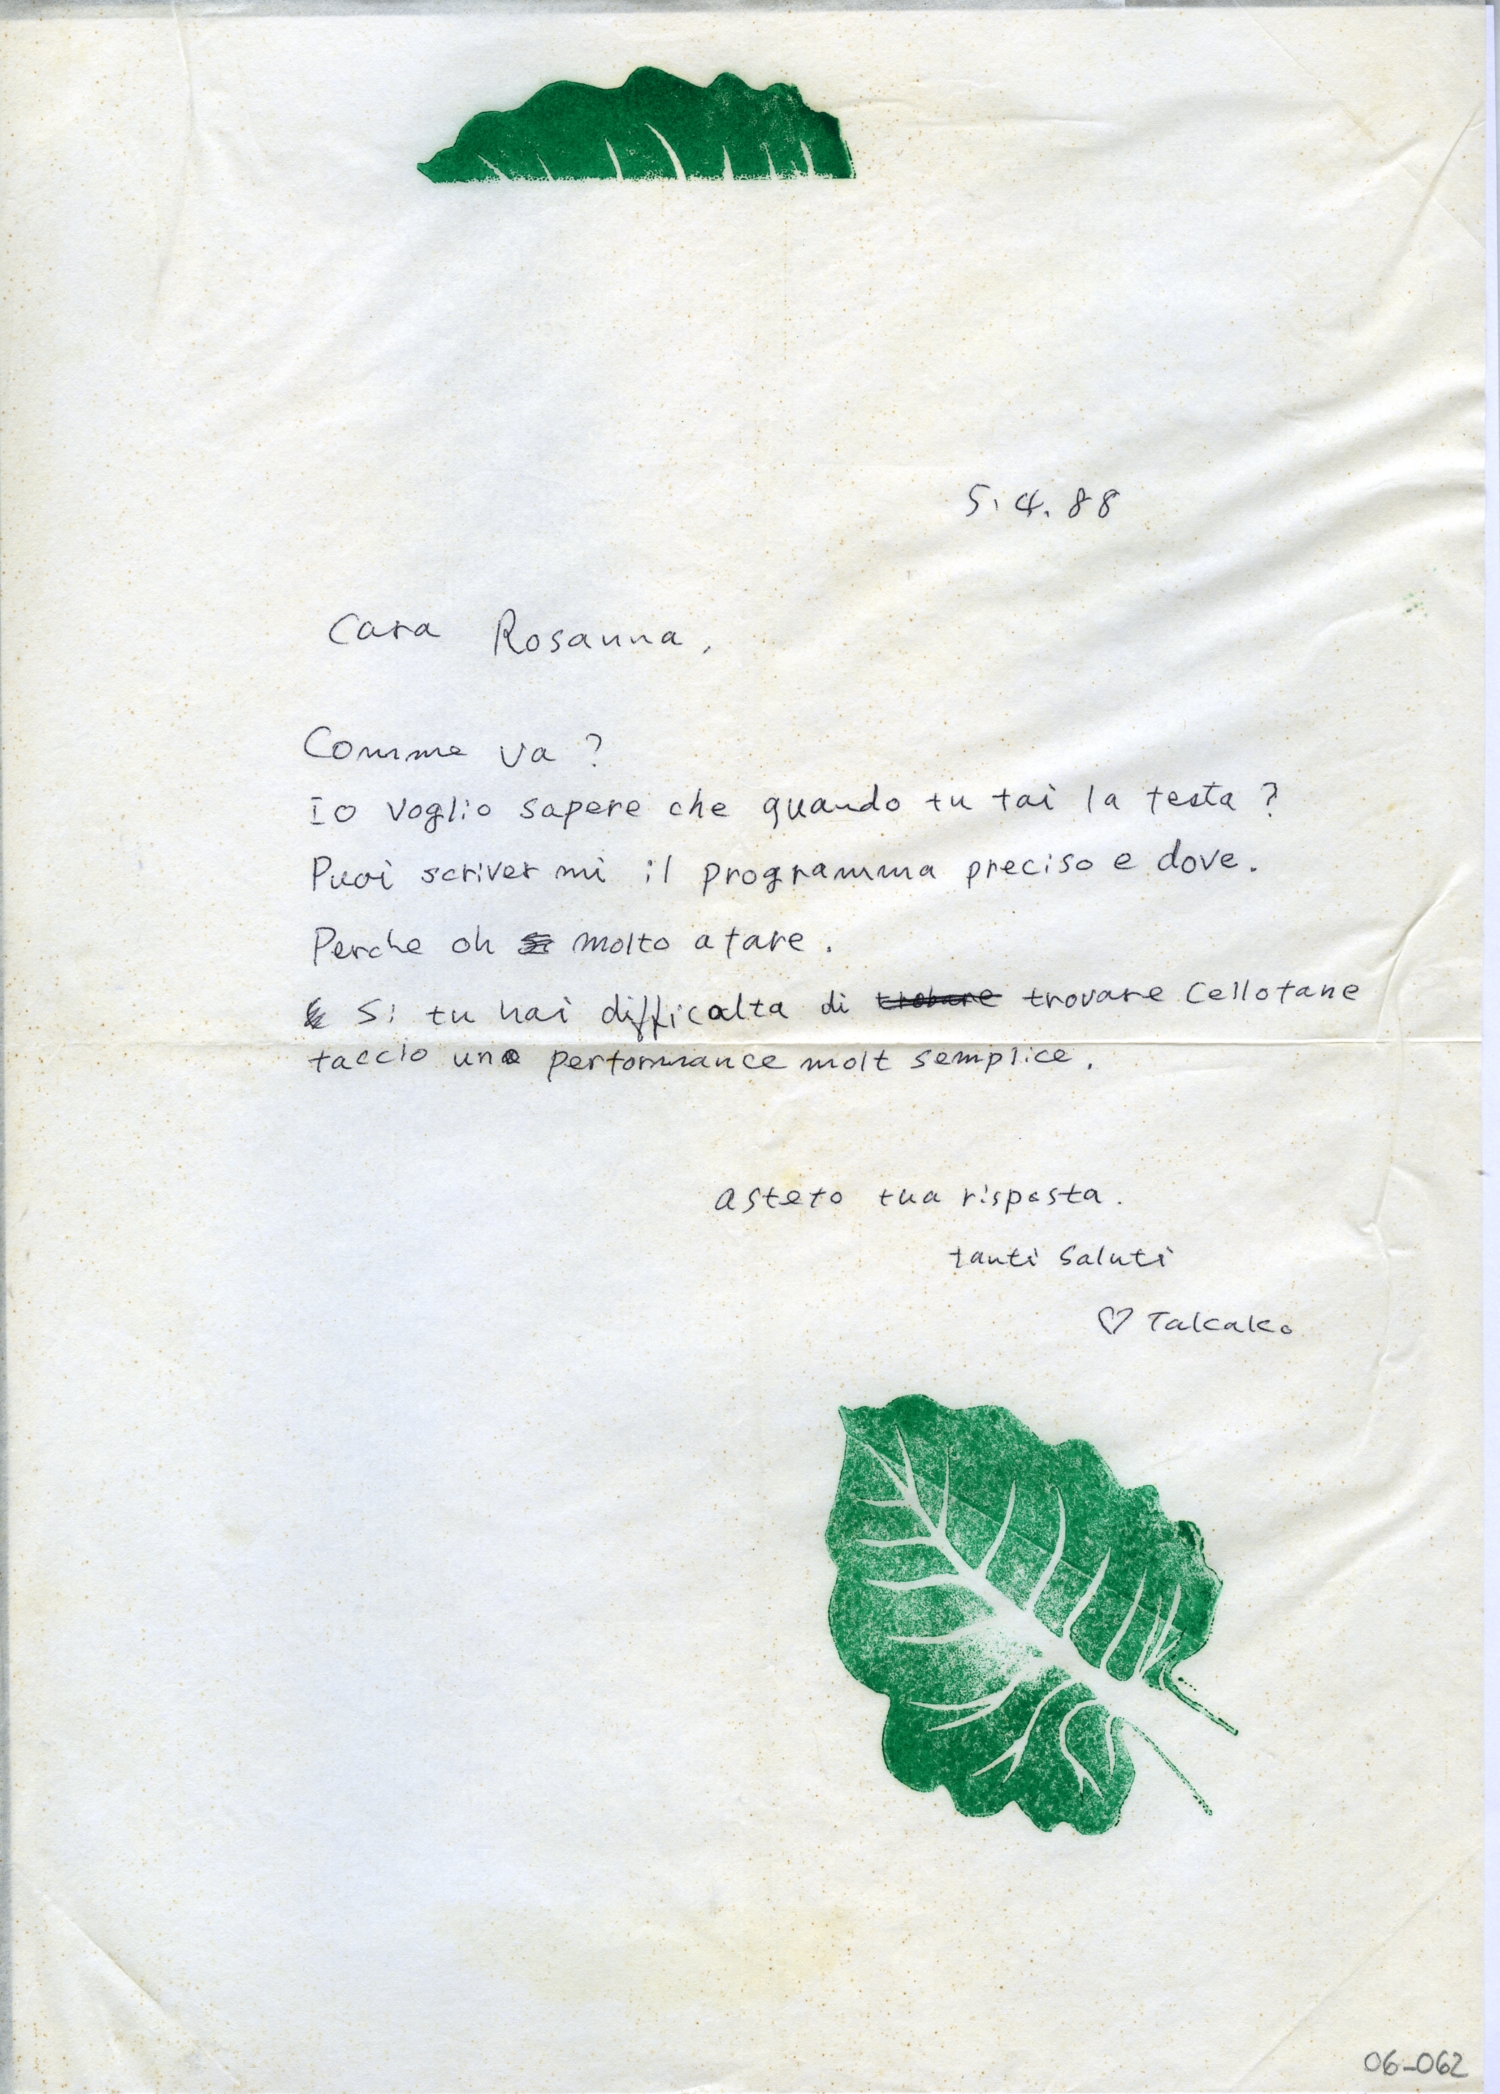 5.4.88
Cara Rosanna,
Comme va?
Io voglio sapere che quando tu fai la festa?
Puoi scriver mi il programma preciso e dove.
Perche oh molto afare.
Si tu hai difficolta di trobare trovare Cellofane
faccio una performance molt semplice.
asteto tua risposta.
tanti saluti
♡ Takako
06-062